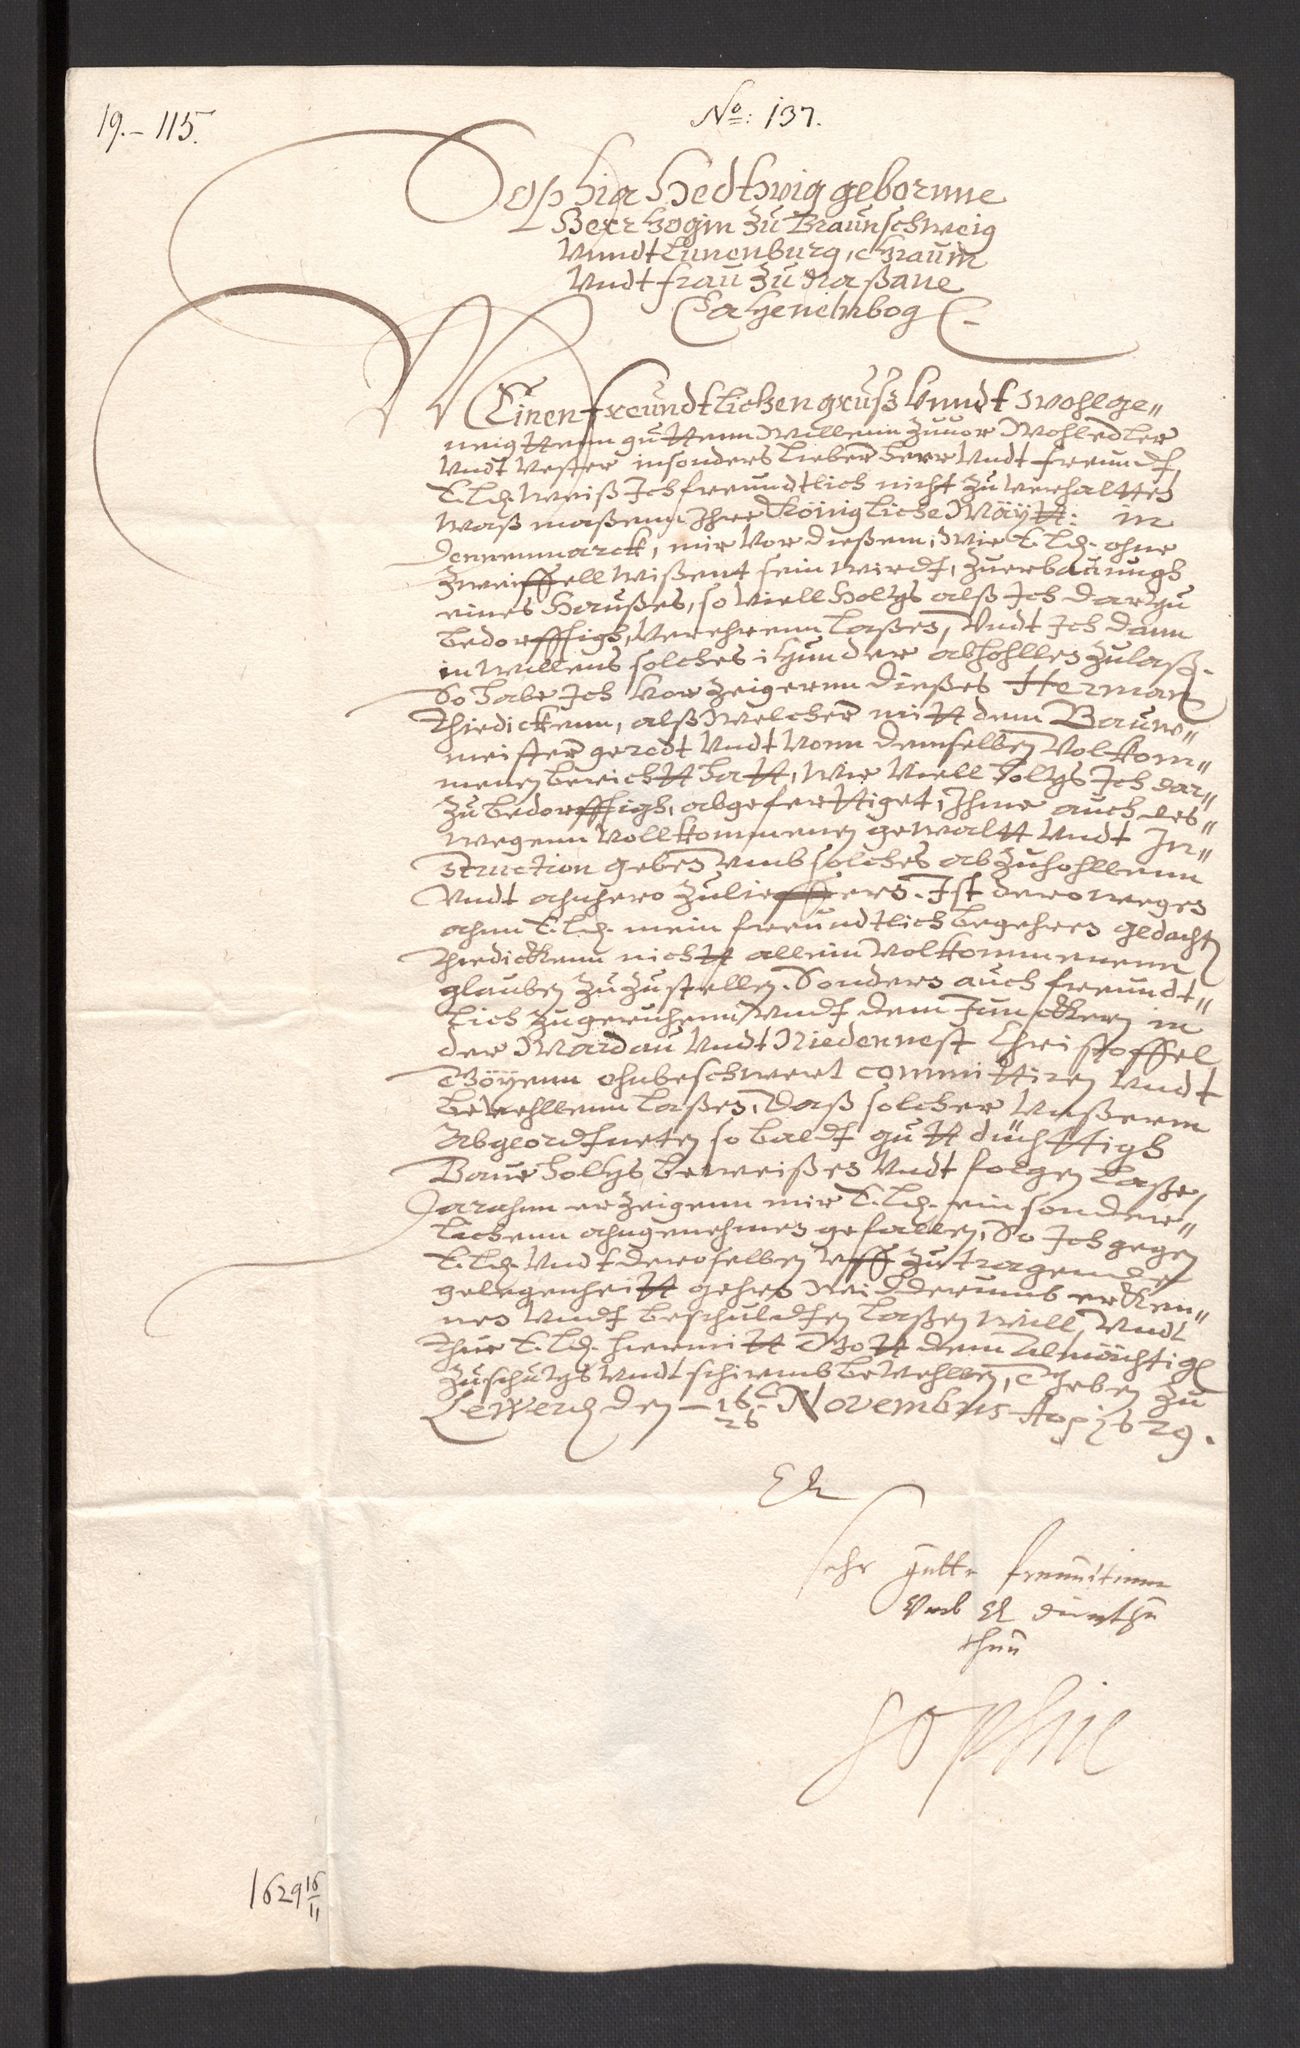 19.- 115.
No: 137.
Sophia Hedtwig gebornne
Hertzogin zu Braunschweig
Vnndt Lunenburg, Graͤuin
Vndt frau zu Naßaue
Catzenelnbog
Meinen freundtlichen gruß Vnndt wohlge„
neigttenn guttenn Willenn zuuor Wohledler
Vndt Vester insonders lieber Herr Vndt freundt,
E. Ld. Weiß Ich freundtlich nicht zu Verhaltten
Waß maßenn Ihre Königliche Maÿtt: in
Dennemarck, mir Vor dießem, Wie E. Ld. ohne
Zweiffell Wißent sein Wirdt, Zuerbauungh
eines Haußes, so Viell Holtz alß Ich dartzu
bedorffigh, Verehrenn laßen, Vndt Ich dann
in Willens solches itzunder abhohllen zu laß.
So habe Ich Vorzeigernn dießes Herman
Thiedickenn, alß Welcher mitt dem Bauwe„
meister geredt Vndt Vonn demselben Volkom„
menen bericht hatt, Wie Viell holtzs Ich dar„
zu bedorffigh, abgeferttiget, Ihme auch des„
wegenn Vollkommenen gewaltt Vndt In„
struction geben Vmb solches abzuhohllenn
Vndt ahnhero zu lieffern. Ist derowegen
ahnn E. Ld. mein freundtlich begehren gedacht
Thiedickenn nicht allein Volkommenenn
glauben zuzustellen. Sondern auch freundt„
lich zu geruhenn Vndt dem Junckern in
der Mardau Vndt Niedernest Christoffel
Göÿenn ohnbeschwert committiren Vndt
bevehllenn laßen, daß solcher Vnßerm
Abgeordtneten so baldt gutt düchttigh
Bauwholtzs beweißen Vndt folgen laße,
Darahnn erzeigenn mir E. Ld. ein sonder„
lichenn ahngenehmen gefallen, So Ich gegen
E. Ld. Vndt deroselben Vff zutragende
gelegenheitt gehrn Widderumb erken„
nen Vndt beschuldten laßen Will, Vndt
Thue E. Ld. hiermitt Gott dem Almächtig
zu schutzs Vndt schirmb bevehllen, Geben zu
Lewerd den 16/26 Novembris Ao 1629.
EL
sehr gutte freundtinne
Vmb EL dienst zu
thun
Sophie
1629 16/11